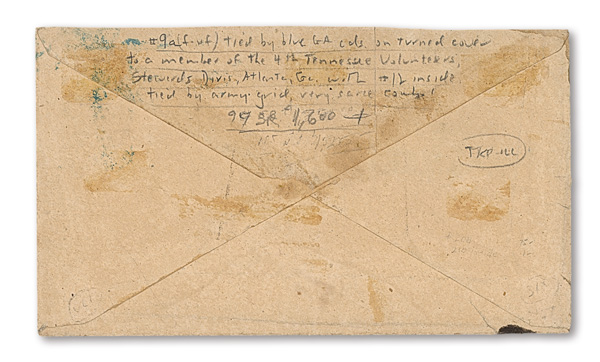 #9a(f-vf) tied by blue GA cds. on turned cover
to a member of the 4th Tennessee Volunteers,
Stewards Divis, Atlanta, Ga. with #12 inside
tied by army grid, very scarce combo!
97 SR $1,600 +